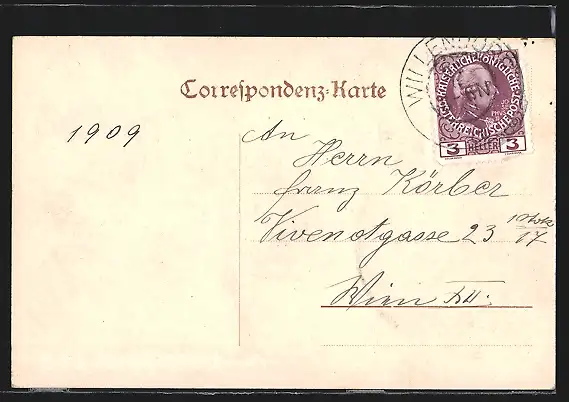 Correspondenz-Karte
WILLENDORF
KAISERLICHE KÖNIGLICHE
ÖSTERREICHISCHE POST
3 HELLER 3
1909
An
Herrn
Franz Körber
Vivenotgasse 23
17
Wien XII.